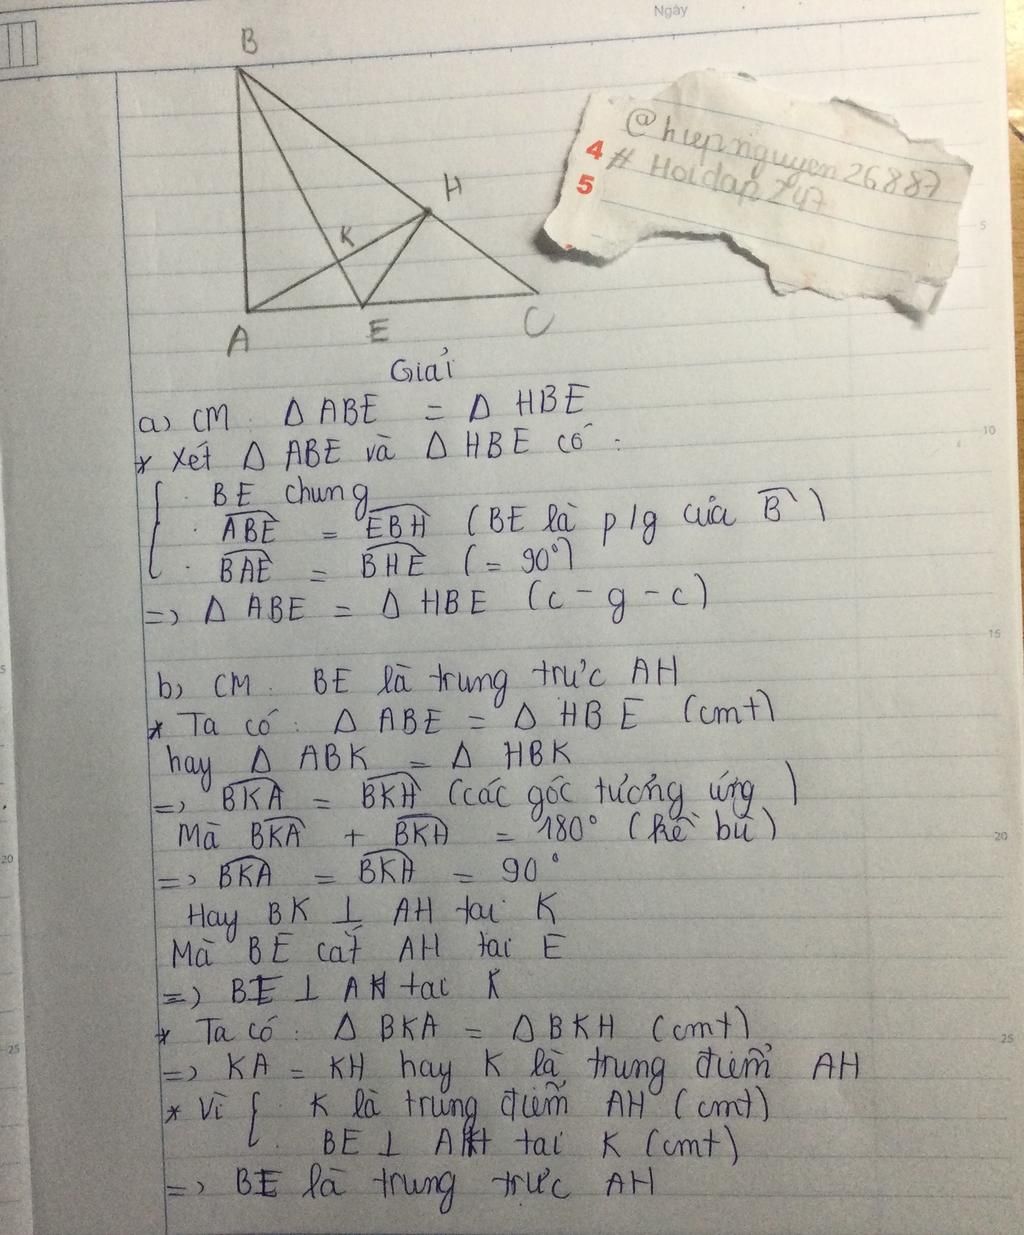 Ngày
B
@hiepnguyen26887
4 # Hoidap247
5
H
K
A E C
Giải
a) CM. Δ ABE = Δ HBE
* Xét Δ ABE và Δ HBE có :
. BE chung
. ABE = EBH (BE là p/g của B)
. BAE = BHE (= 90°)
=> Δ ABE = Δ HBE (c - g - c)
b) CM. BE là trung trực AH
* Ta có : Δ ABE = Δ HBE (cmt)
hay Δ ABK = Δ HBK
=> BKA = BKH (các góc tương ứng)
Mà BKA + BKH = 180° (kề bù)
=> BKA = BKH = 90°
Hay BK ⊥ AH tai K
Mà BE cắt AH tai E
=> BE ⊥ AH tai K
* Ta có : Δ BKA = Δ BKH (cmt)
=> KA = KH hay K là trung điểm AH
* Vì { . K là trung điểm AH (cmt)
. BE ⊥ AH tai K (cmt)
=> BE là trung trực AH
5
10
15
20
25
5
20
25